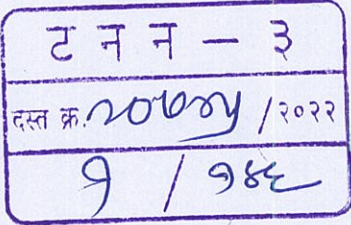 ट न न - ३
दस्त क्र. २०७४५ / २०२२
१ / १४६